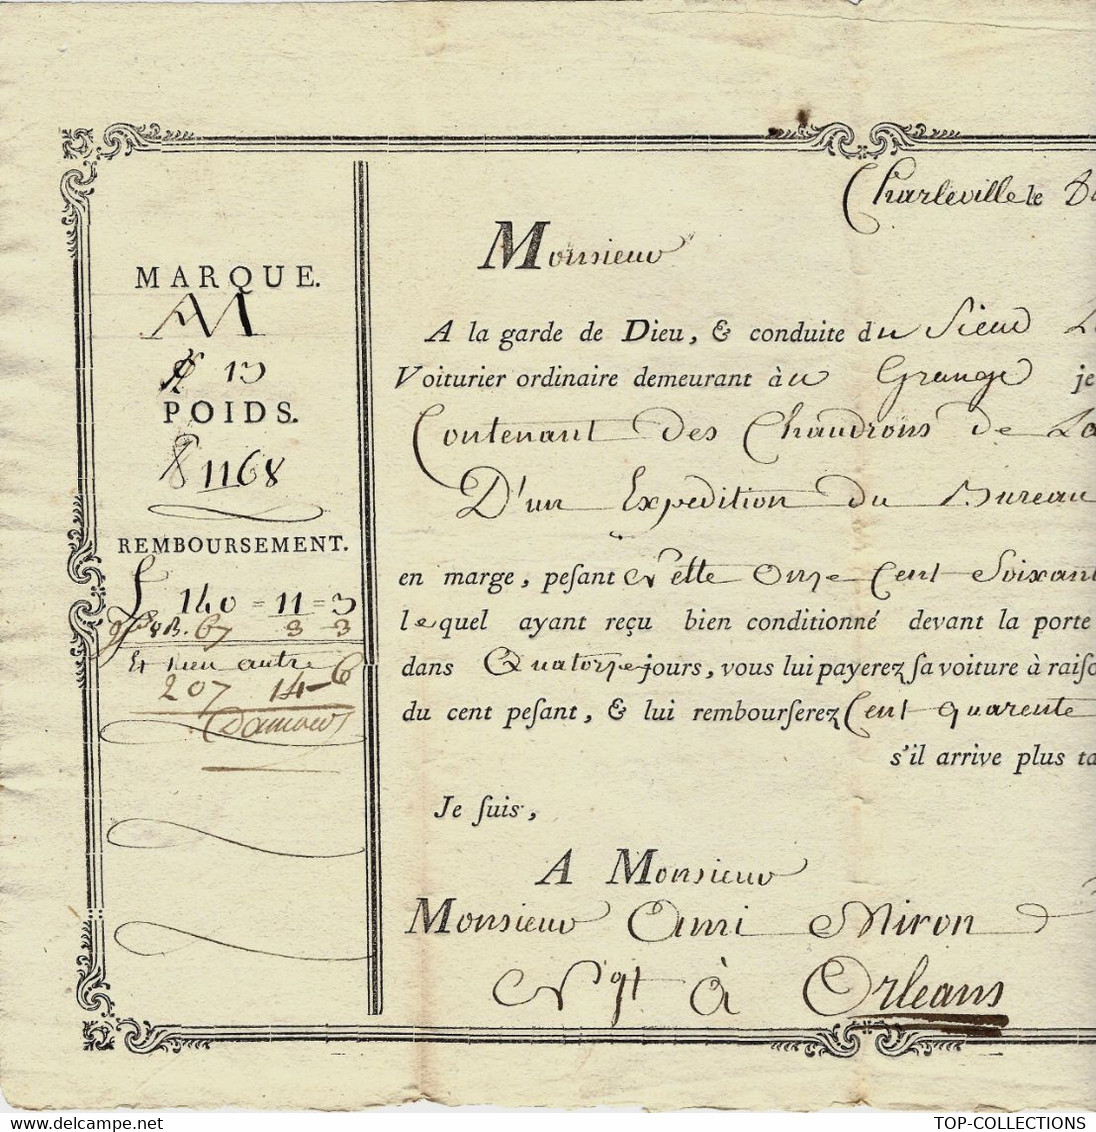 MARQUE.
AM
13
POIDS.
1168
REMBOURSEMENT.
140 = 11 = 3
67 3 3
Et rien autre
207 14 - 6
Charleville le
Monsieur
A la garde de Dieu, & conduite du Sieur
Voiturier ordinaire demeurant à u Grange je
Contenant Des Chaudrons De
D'un Expedition du Bureau
en marge, pesant Nette Onze Cent Soixant
lequel ayant reçu bien conditionné devant la porte
dans Quatorze jours, vous lui payerez sa voiture à raiso
du cent pesant, & lui rembourserez Cent quarente
s'il arrive plus ta
Je suis,
A Monsieur
Monsieur Ami Miron
Ngt à Orleans
TOP-COLLECTIONS